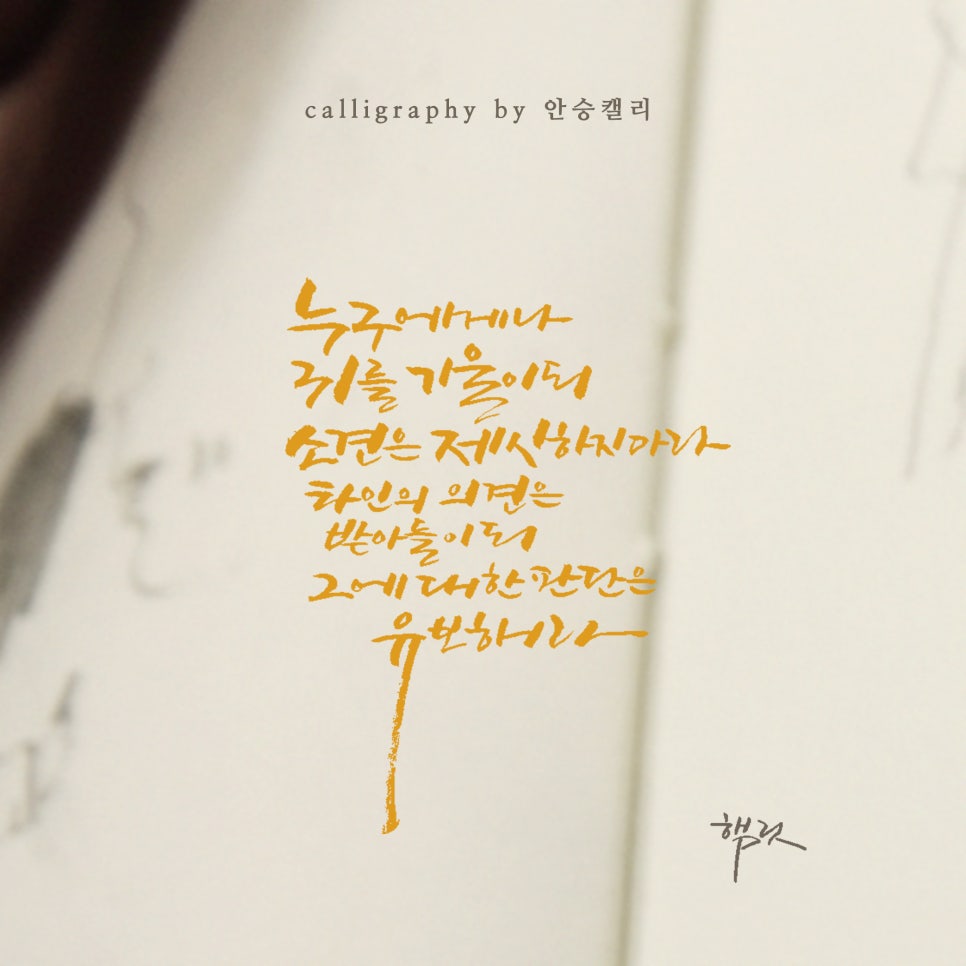 calligraphy by 안승캘리
누구에게나
귀를 기울이되
소견은 제시하지마라
타인의 의견은
받아들이되
그에 대한 판단은
유보해라
햄릿